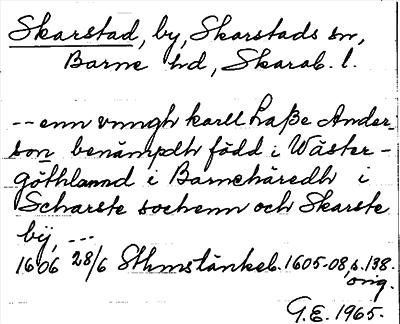 Skarstad, by, Skarstads sn,
Barne hd, Skarab. l.
-- enn vnngh karll Laße Ander-
son benämpdh född i Wäster-
göthlannd i Barnehäredh i
Scharste sochenn och Skarste
bÿ, ---
1606 28/6 Sthmstänkeb. 1605-08, s. 138.
orig.
G.E. 1965.